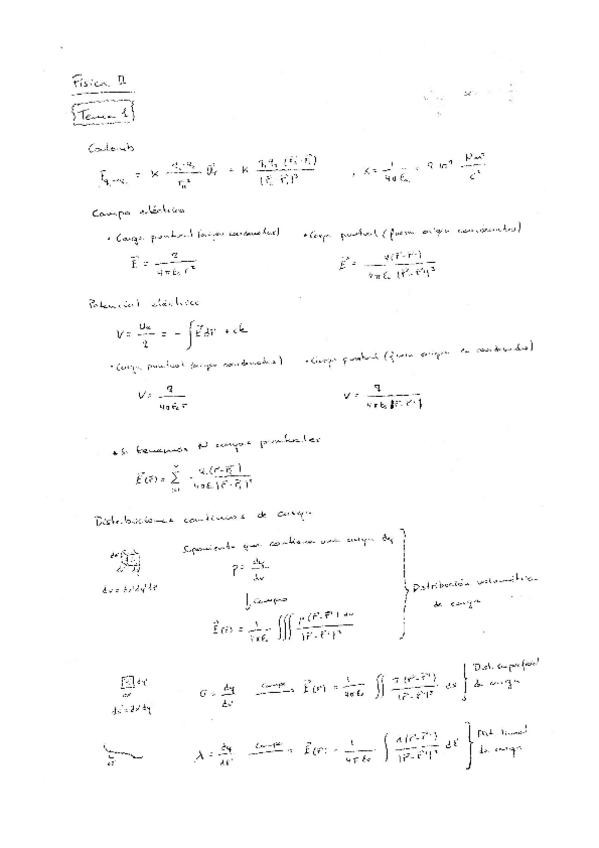 Física II
Tema 1
Coulomb
F_{q₁→q₂} = K (q₁·q₂)/(r₁₂²) ū_r = K q₁q₂(r̄₂-r̄₁)/|r̄₂-r̄₁|³ , K = 1/(4πε₀) = 9·10⁹ Nm²/C²
Campo eléctrico
• Carga puntual (origen coordenadas) • Carga puntual (fuera origen coordenadas)
E⃗ = q/(4πε₀ r²) E⃗ = q(r̄-r̄')/(4πε₀ |r̄-r̄'|³)
Potencial eléctrico
V = = -∫E⃗dr̄ + cte
• Carga puntual (origen coordenadas) • Carga puntual (fuera origen coordenadas)
V = q/(4πε₀r) V = q/(4πε₀|r̄-r̄'|)
• Si tenemos N cargas puntuales
E⃗(r̄) = Σ
Distribuciones continuas de carga
que contiene una carga dq
dv = dx'dy'dz' ρ = dq/dv
↓ campo
Distribución volumétrica
de carga
E⃗(r̄) = 1/(4πε₀) ∭ ρ(r̄-r̄') dv/|r̄-r̄'|³
dy'
dx'
σ = dq/ds' campo→ E⃗(r̄) = 1/(4πε₀) ∬ σ(r̄-r̄')/|r̄-r̄'|³ ds Dist. superficial
de carga
ds' = dx'dy'
λ = dq/dl' campo→ E⃗(r̄) = 1/(4πε₀) ∫ λ(r̄-r̄')/|r̄-r̄'|³ dl Dist. lineal
de carga